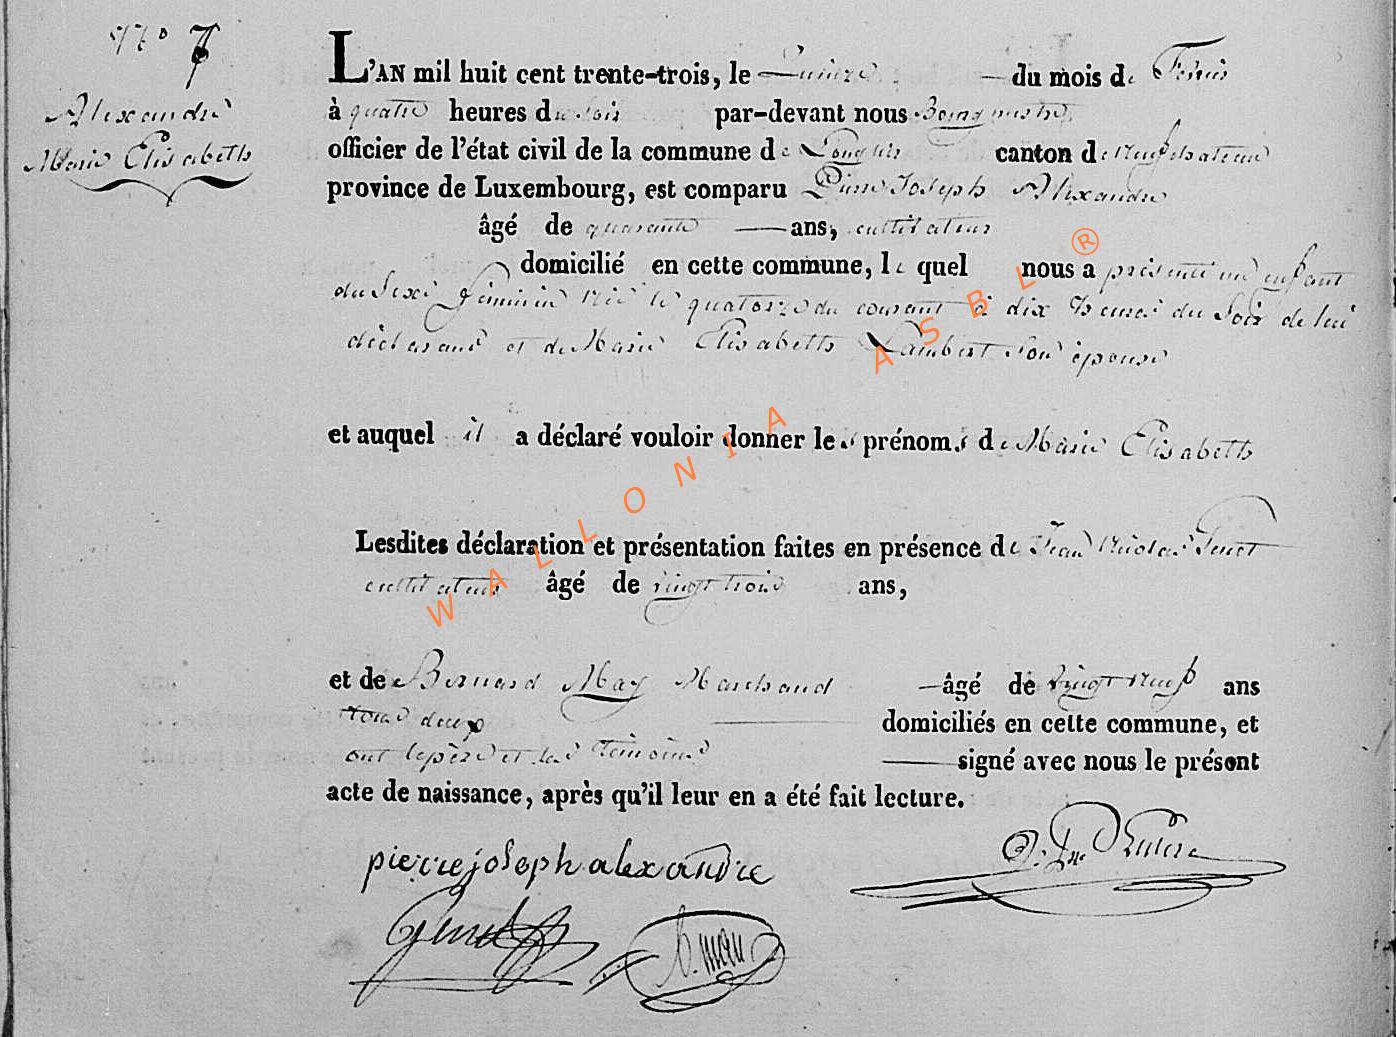 N° 7
Alexandre
Marie Elisabeth
L'AN mil huit cent trente-trois, le Quinze du mois de
à quatre heures du soir par-devant nous Bourgmestre
officier de l'état civil de la commune de Longlier canton de Neufchateau
province de Luxembourg, est comparu Pierre Joseph Alexandre
âgé de quarante ans, cultivateur
domicilié en cette commune, le quel nous a présenté un enfant
du Sexe féminin née le quatorze du courant à dix heures du Soir de lui
déclarant et de Marie Elisabeth Lambert son épouse
et auquel il a déclaré vouloir donner les prénoms de Marie Elisabeth
Lesdites déclaration et présentation faites en présence de Jean Nicolas
cultivateur âgé de vingt trois ans,
et de Bernard May Marchand âgé de vingt neuf ans
tous deux domiciliés en cette commune, et
ont le père et les témoins signé avec nous le présent
acte de naissance, après qu'il leur en a été fait lecture.
pierre joseph alexandre
WALLONIA ASBL ®